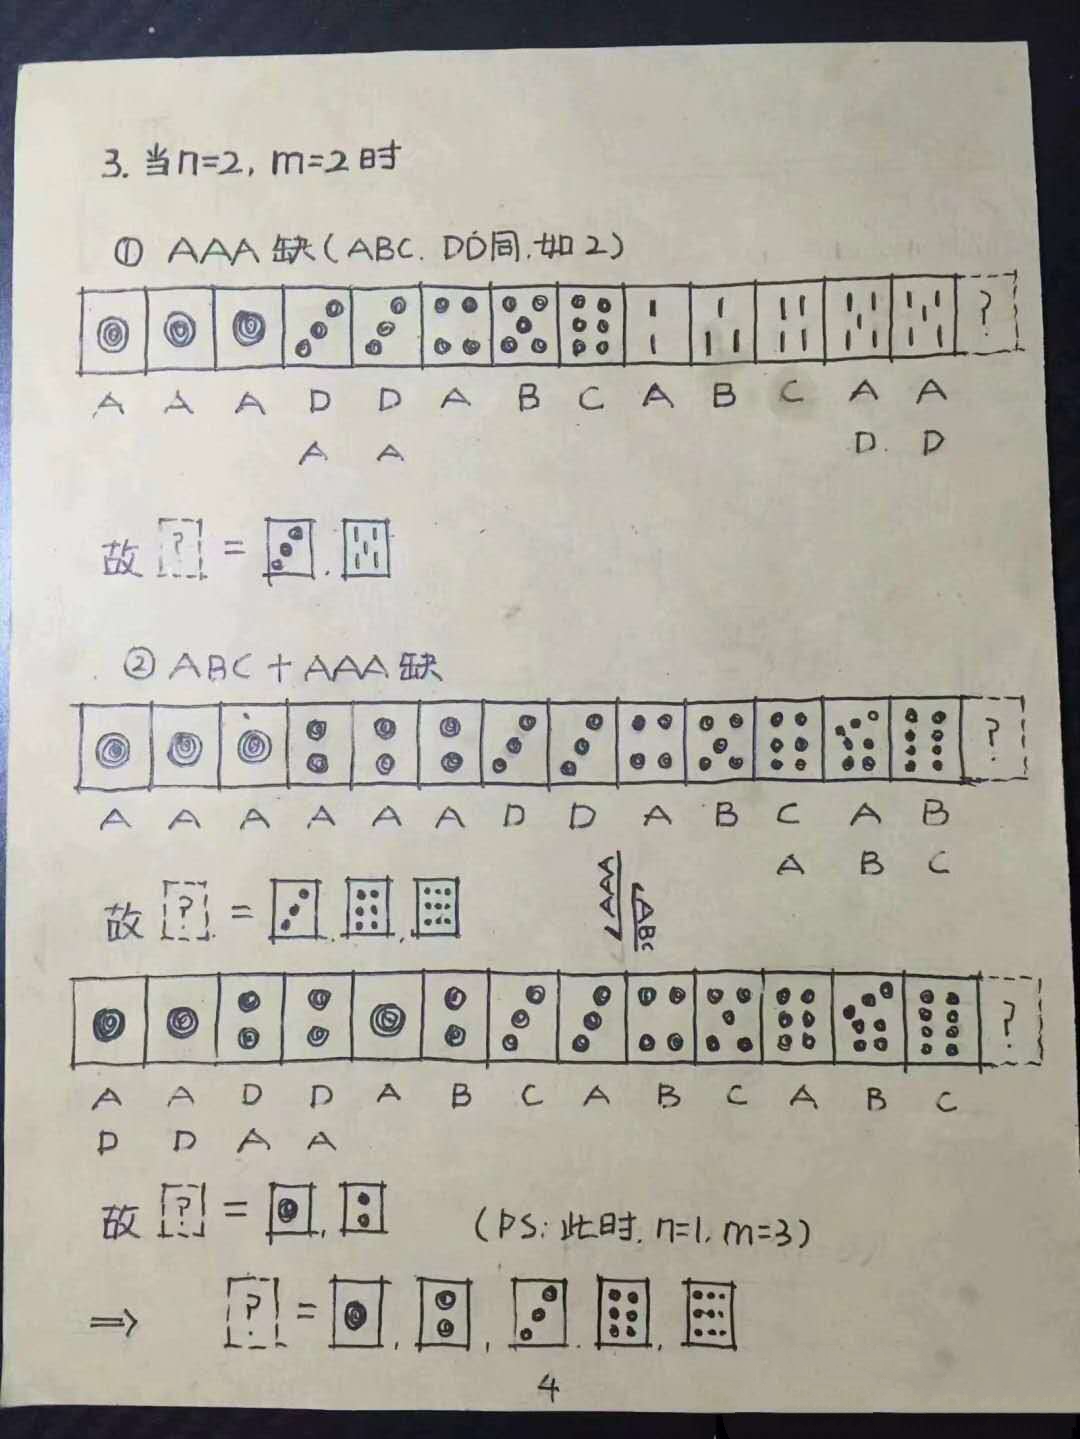 3. 当n=2, m=2时
① AAA 缺(ABC. DD同.如2)
?
A A A D D A B C A B C A A
A A D. D
故 ? = , 
② ABC+AAA缺
?
A A A A A A D D A B C A B
A B C
AAA
ABC
故 ? = , ,
?
A A D D A B C A B C A B C
D D A A
故 ? = , (PS: 此时, n=1, m=3)
⇒ ? = , , , ,
4